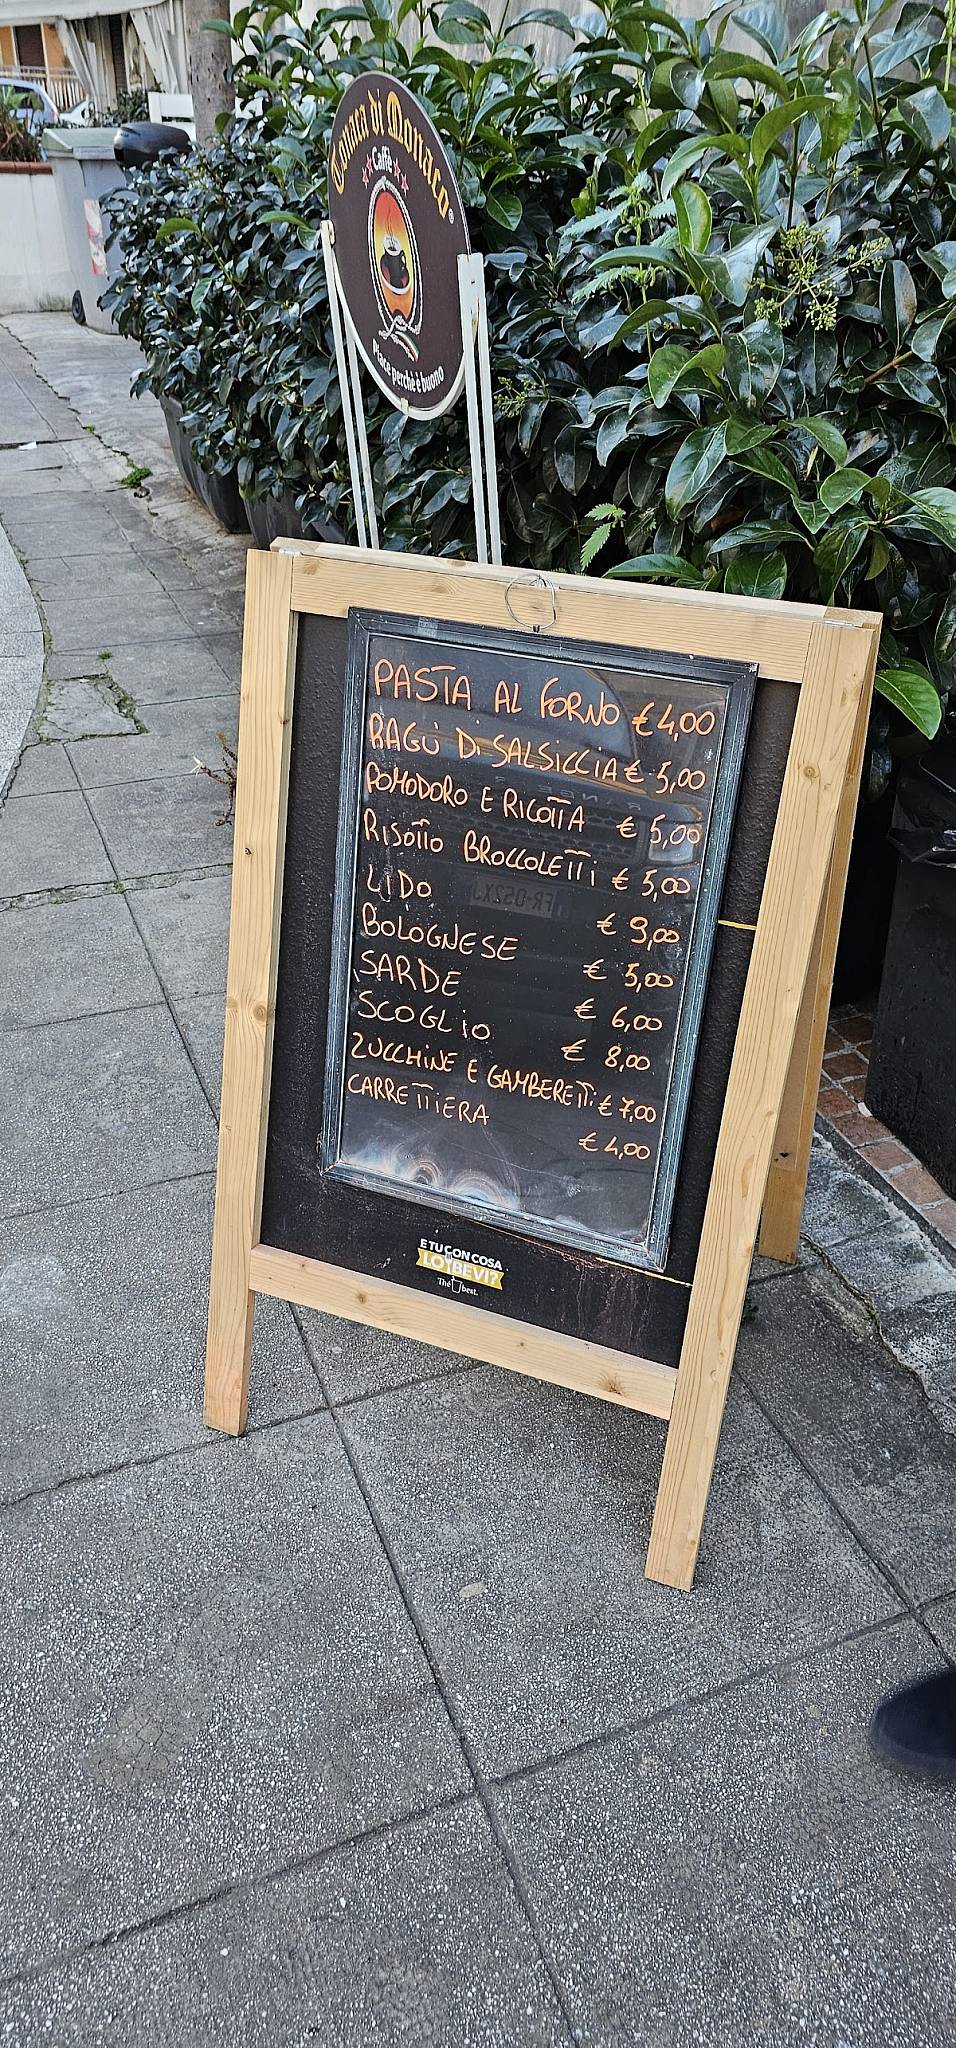 Tonaca di Monaco ®
Caffè
Piace perchè è buono
PASTA AL FORNO € 4,00
RAGÙ Di SALSICCIA € 5,00
POMODORO E RICOTTA € 5,00
RISOTTO BROCCOLETTi € 5,00
LIDO € 9,00
BOLOGNESE € 5,00
SARDE € 6,00
SCOGLIO € 8,00
ZUCCHINE E GAMBERETTi € 7,00
CARRETTIERA € 4,00
E TU CON COSA
LO BEVI?
Thé best.